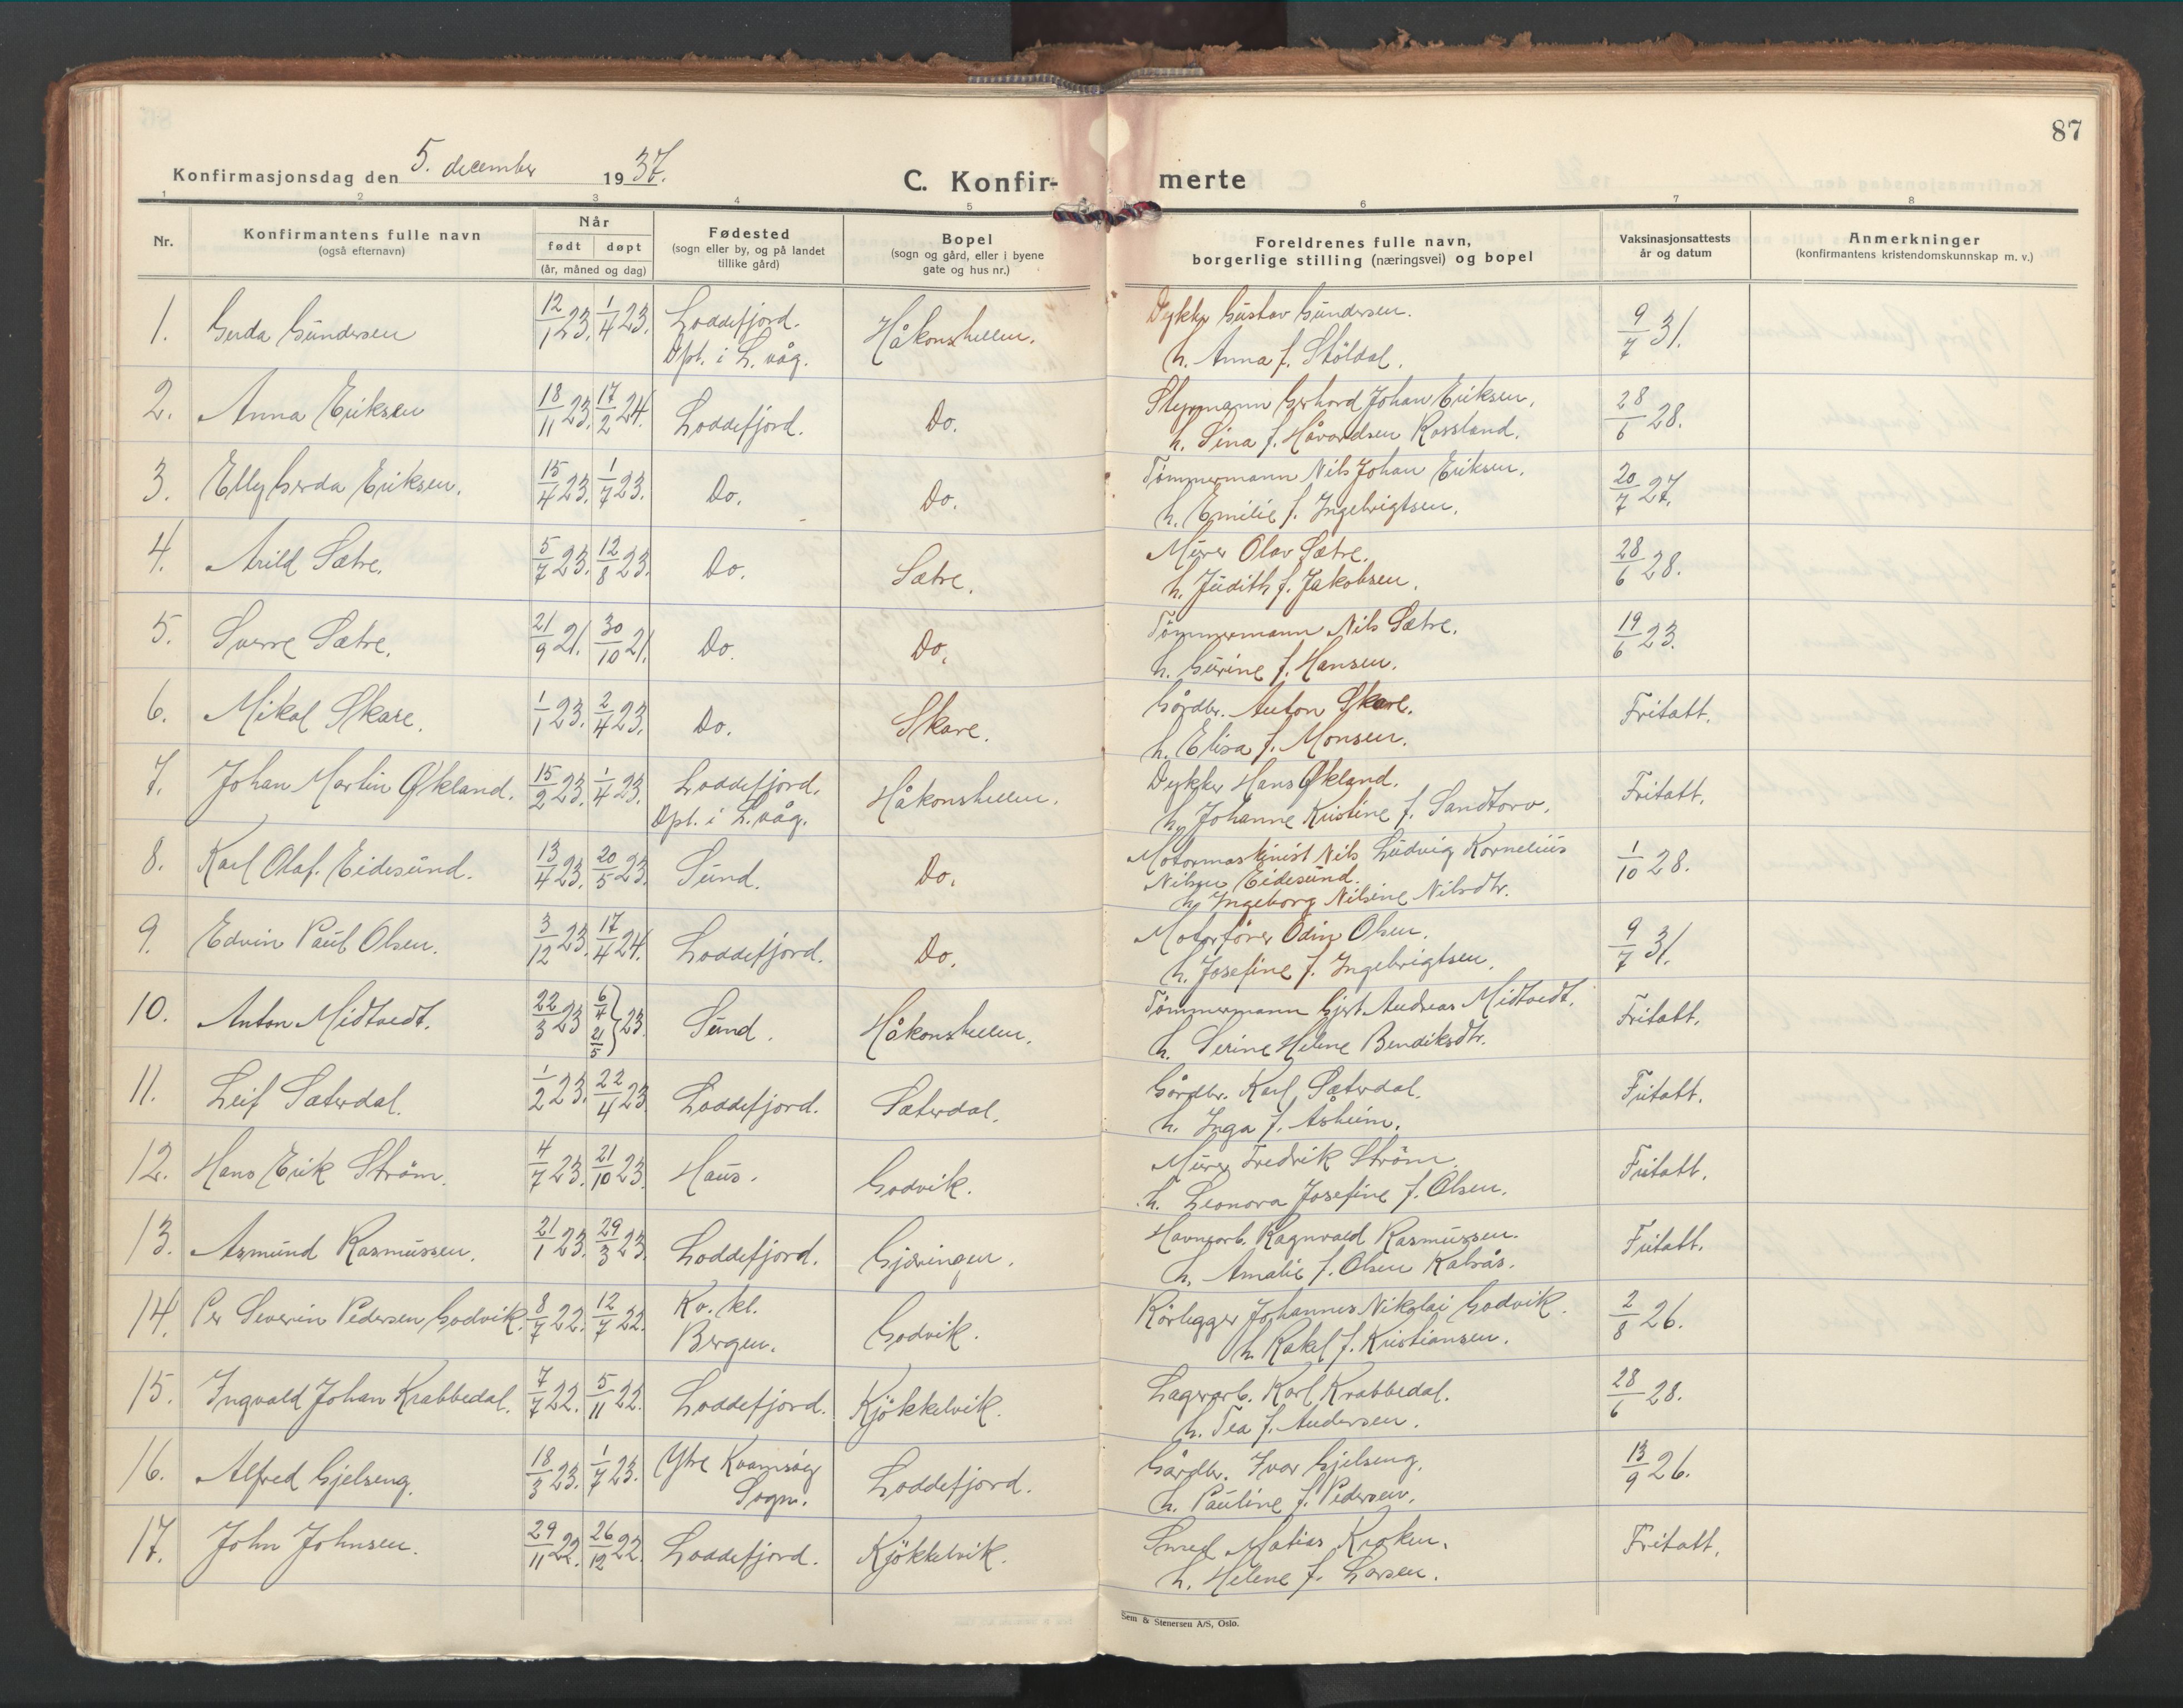 87
Konfirmasjonsdag den 5. december 1937.
C. Konfir- merte
1 2 3 4 5 6 7 8
Nr.
Konfirmantens fulle navn
(også efternavn)
Når
født døpt
(år, måned og dag)
Fødested
(sogn eller by, og på landet
tillike gård)
Bopel
(sogn og gård, eller i byene
gate og hus nr.)
Foreldrenes fulle navn,
borgerlige stilling (næringsvei) og bopel
Vaksinasjonsattests
år og datum
Anmerkninger
(konfirmantens kristendomskunnskap m. v.)
1. Gerda Gundersen 12/1 23. 1/4 23. Loddefjord. Håkonshellen. Dykker Gustav Gundersen. 9/7 31.
Dpt. i L. våg. h. Anna f. Stöldal.
2. Anna Eriksen 18/11 23. 17/2 24. Loddefjord. Do. Styrmann Gerhard Johan Eriksen. 28/6 28.
h. Sina f. Håvardsen Rossland.
3. Elly Gerda Eriksen. 15/4 23. 1/7 23. Do. Do. Tømmermann Nils Johan Eriksen. 20/7 27.
h. Emilie f. Ingebrigtsen.
4. Arild Sætre. 5/7 23. 12/8 23. Do. Sætre. Murer Olav Sætre. 28/6 28.
h. Judith f. Jakobsen.
5. Sverre Sætre. 21/9 21. 30/10 21. Do. Do. Tömmermann Nils Sætre. 19/6 23.
h. Gurine f. Hansen.
6. Mikal Skare. 1/1 23. 2/4 23. Do. Skare. Gårdbr. Anton Skare. Fritatt.
h. Elisa f. Monsen.
7. Johan Martin Økland. 15/2 23. 1/4 23. Loddefjord. Håkonshellen. Dykker Hans Økland. Fritatt.
Dpt. i L. våg. h. Johanne Kristine f. Sandtorv.
8. Karl Olaf. Eidesund. 13/4 23. 20/5 23. Sund. Do. Motormaskinist Nils Ludvig Kornelius 1/10 28.
Nilsen Eidesund.
h. Ingeborg Nilsine Nilsdtr.
9. Edvin Paul Olsen. 3/12 23. 17/4 24. Loddefjord. Do. Motorförer Odin Olsen. 9/7 31.
h. Josefine f. Ingebrigtsen.
10. Anton Midtvedt. 22/3 23 6/4 21/5 } 23. Sund. Håkonshellen. Tömmermann Gjert Andreas Midtvedt. Fritatt.
h. Serine Helene Bendiksdtr.
11. Leif Sæterdal. 1/2 23. 22/4 23. Loddefjord. Sæterdal. Gårdbr. Karl Sæterdal. Fritatt.
h. Inga f. Åsheim.
12. Hans Erik Ström. 4/7 23. 21/10 23. Haus. Godvik. Murer Fredrik Ström. Fritatt.
h. Leonora Josefine f. Olsen.
13. Asmund Rasmussen. 21/1 23. 29/3 23. Loddefjord. Gjæringen. Havnearb. Ragnvald Rasmussen. Fritatt.
h. Amalie f. Olsen Kalvås.
14. Per Severin Pedersen Godvik. 8/7 22. 12/7 22. Kv. kl. Godvik. Rörlegger Johannes Nikolai Godvik. 2/8 26.
Bergen. h. Rakel f. Kristiansen.
15. Ingvald Johan Krabbedal. 7/7 22. 5/11 22. Loddefjord. Kjökkelvik. Lagerarb. Karl Krabbedal. 28/6 28.
h. Tea f. Andersen.
16. Alfred Gjelseng. 18/3 23. 1/7 23. Ytre Kvamsöy Loddefjord. Gårdbr. Ivar Gjelseng. 13/9 26.
Sogn. h. Pauline f. Pedersen.
17. John Johnsen. 29/11 22. 26/12 22. Loddefjord. Kjökkelvik. Smed Matias Kroken. Fritatt.
h. Helene f. Larsen.
Sem & Stenersen A/S, Oslo.